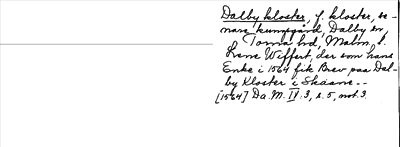 Dalby kloster, f. kloster, se-
nare kungsgård, Dalby sn,
Torna hd, Malm. l.
Lene Wiffert, der som hans
Enke i 1564 fik Brev paa Dal-
by Kloster i Skaane. -
[1564] Da. M. IV. 3, s. 5, not 3.